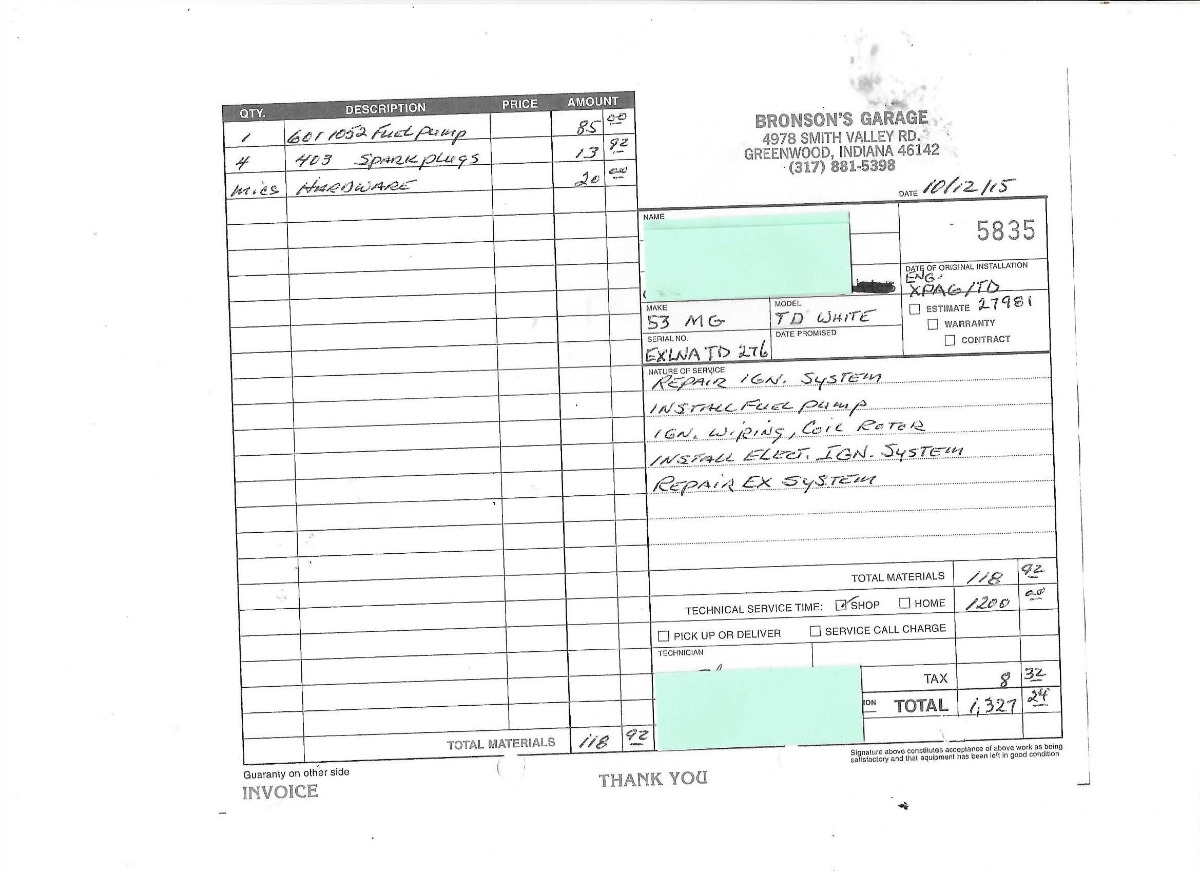 QTY. DESCRIPTION PRICE AMOUNT
1 6011052 Fuel Pump 85 00
4 403 Spark plugs 13 92
mics HARDWARE 20 00
TOTAL MATERIALS 118 92
Guaranty on other side
INVOICE
THANK YOU
BRONSON'S GARAGE
4978 SMITH VALLEY RD.
GREENWOOD, INDIANA 46142
(317) 881-5398
DATE 10/12/15
NAME
5835
DATE OF ORIGINAL INSTALLATION
ENG.
XPAG/TD
27981
ESTIMATE
WARRANTY
CONTRACT
MAKE
53 MG
MODEL
TD WHITE
SERIAL NO.
EXLNA TD 276
DATE PROMISED
NATURE OF SERVICE
REPAIR IGN. SYSTEM
INSTALL FUEL PUMP
IGN. WIRING, COIL ROTOR
INSTALL ELECT. IGN. SYSTEM
REPAIR EX SYSTEM
TOTAL MATERIALS 118 92
TECHNICAL SERVICE TIME: SHOP HOME 1200 00
PICK UP OR DELIVER SERVICE CALL CHARGE
TECHNICIAN
TAX 8 32
TOTAL 1,327 24
Signature above constitutes acceptance of above work as being
satisfactory and that equipment has been left in good condition